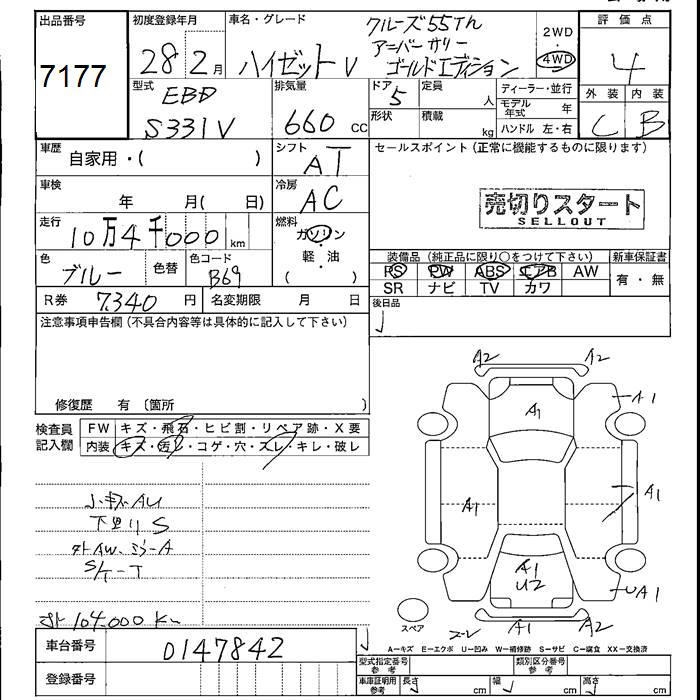 出品番号 初度登録年月 車名・グレード 評価点
7177
28 2月
ハイゼットV
クルーズ55Th
アニバーサリー
ゴールドエディション
2WD
4WD
4
外装 内装
C B
型式 EBD
S331V
排気量
660 cc
ドア 5 定員 人
形状 積載 kg
ディーラー・並行
モデル年式 年
ハンドル 左・右
車歴 自家用・( )
シフト AT
セールスポイント(正常に機能するものに限ります)
車検 年 月( 日)
冷房 AC
売切りスタート
SELLOUT
走行 10万4千000 km
燃料 ガソリン
軽・油
( )
色 ブルー 色替 色コード B69
装備品(純正品に限り○をつけて下さい) 新車保証書
PS PW ABS エアB AW 有・無
SR ナビ TV カワ
R券 7340 円 名変期限 月 日
後日品
注意事項申告欄(不具合内容等は具体的に記入して下さい)
修復歴 有 〔箇所 〕
検査員記入欄
FW キズ・飛石・ヒビ割・リペア跡・X要
内装 キズ・汚レ・コゲ・穴・スレ・キレ・破レ
小キズAU
下廻りS
外AW、ミラーA
S/K-T
104.000 Km
A2 A2
A1 A1
A1 A1
A1
U2 UA1
A1 A2
スペア
A=キズ E=エクボ U=凹み W=補修跡 S=サビ C=腐食 XX=交換済
車台番号 0147842
登録番号
型式指定番号 参考 類別区分番号 参考
車庫証明用 参考 長さ cm 幅 cm 高さ cm